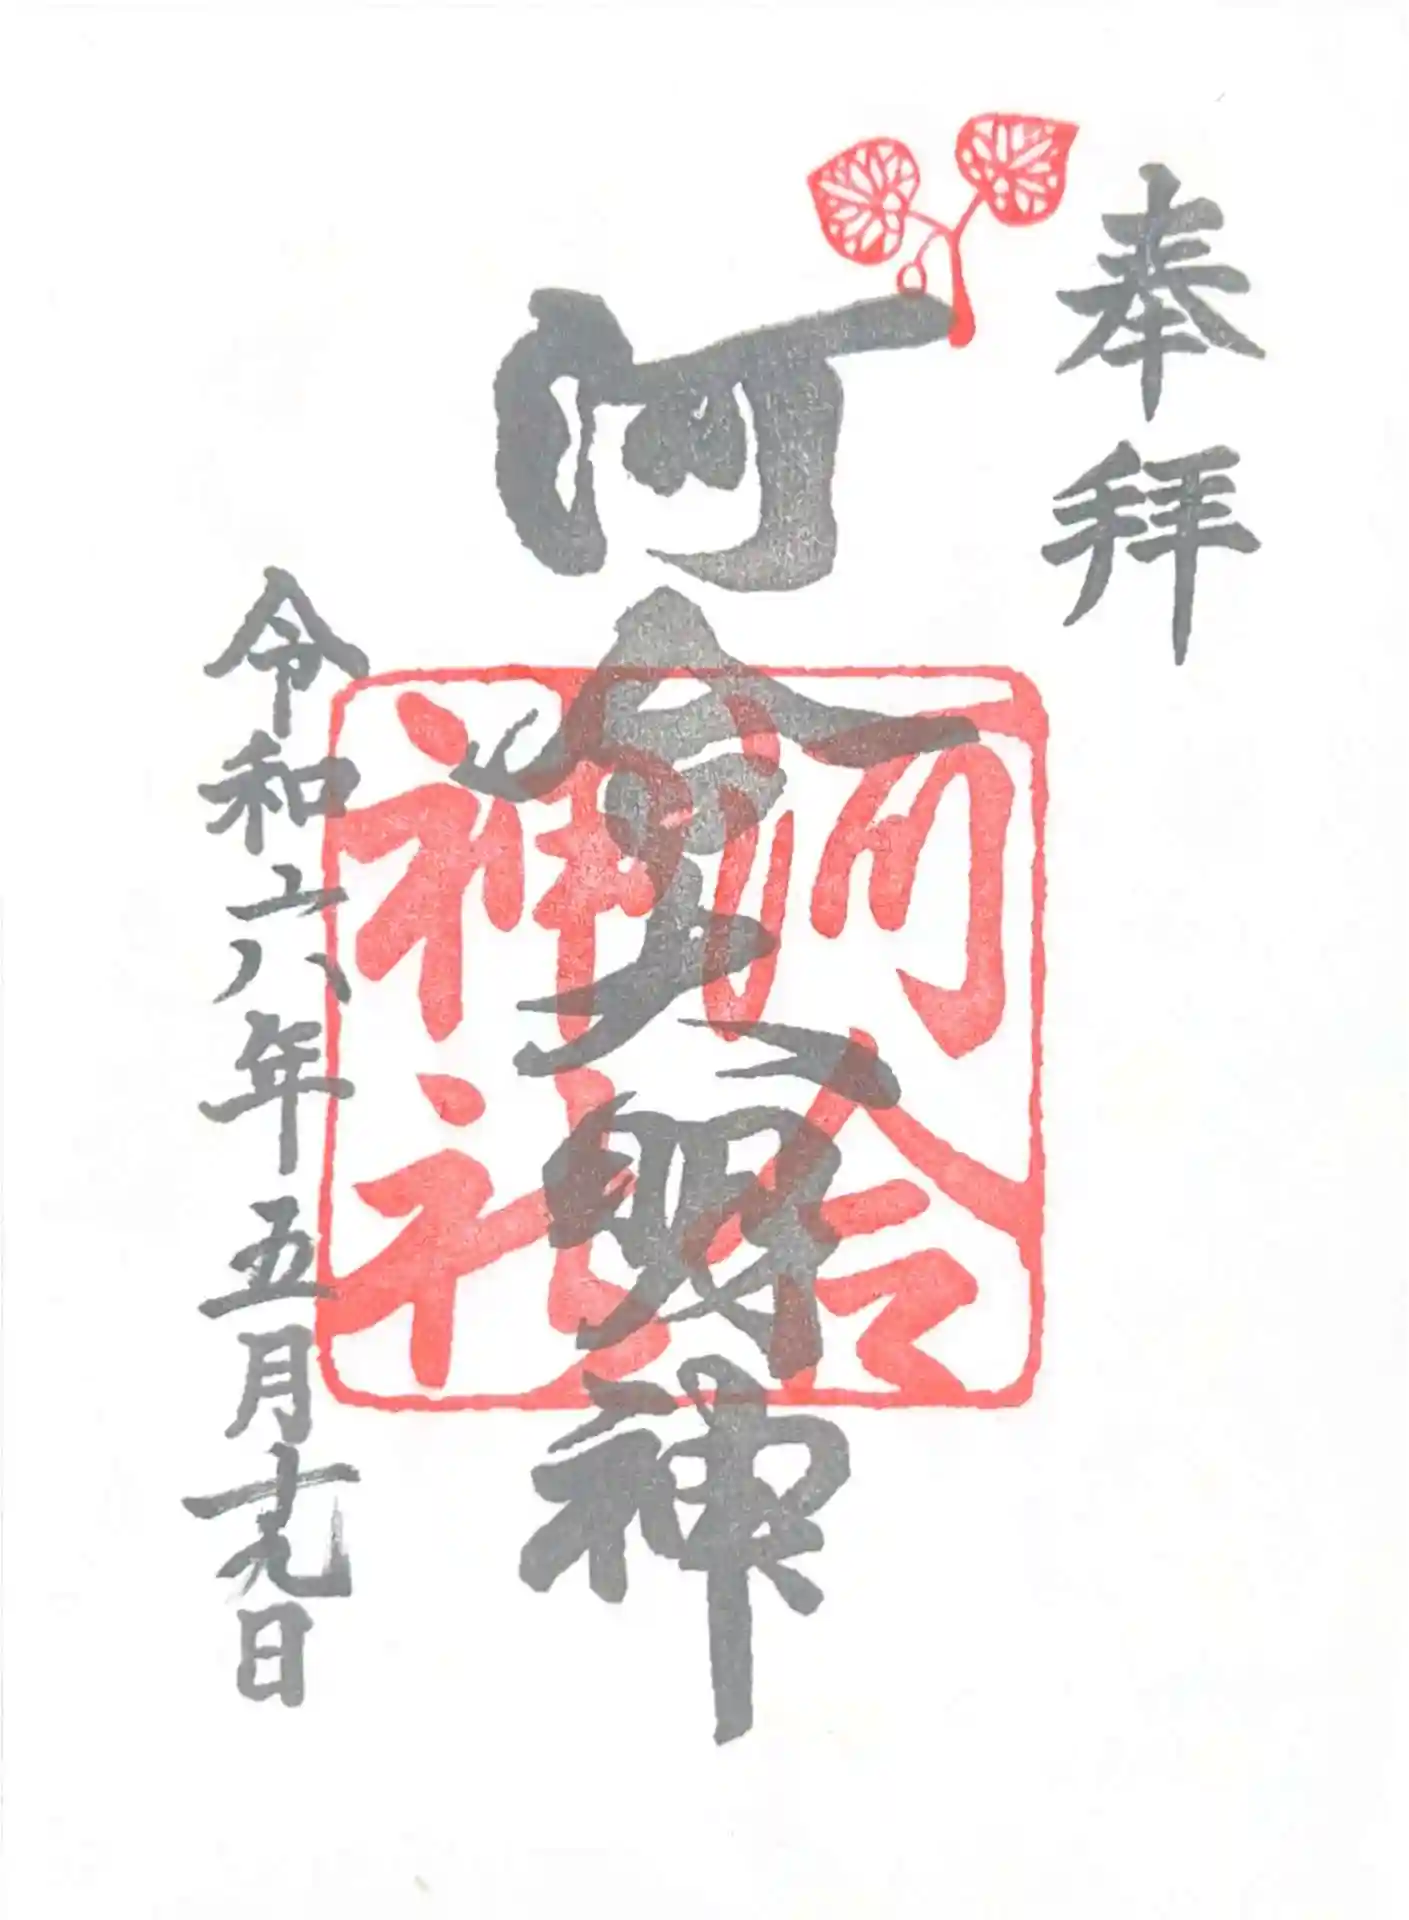 奉拝
河合大明神
河合
神社
令和六年五月十九日